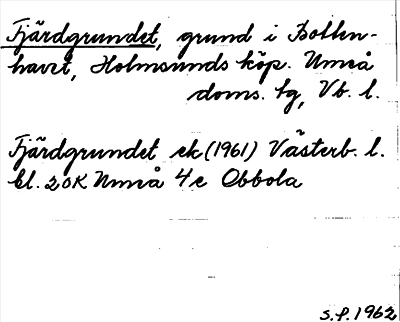 Fjärdgrundet, grund i Botten-
havet, Holmsunds köp. Umeå
doms. tg, Vb. l.
Fjärdgrundet ek (1961) Västerb. l.
bl. 20K Umeå 4e Obbola
S.f. 1962